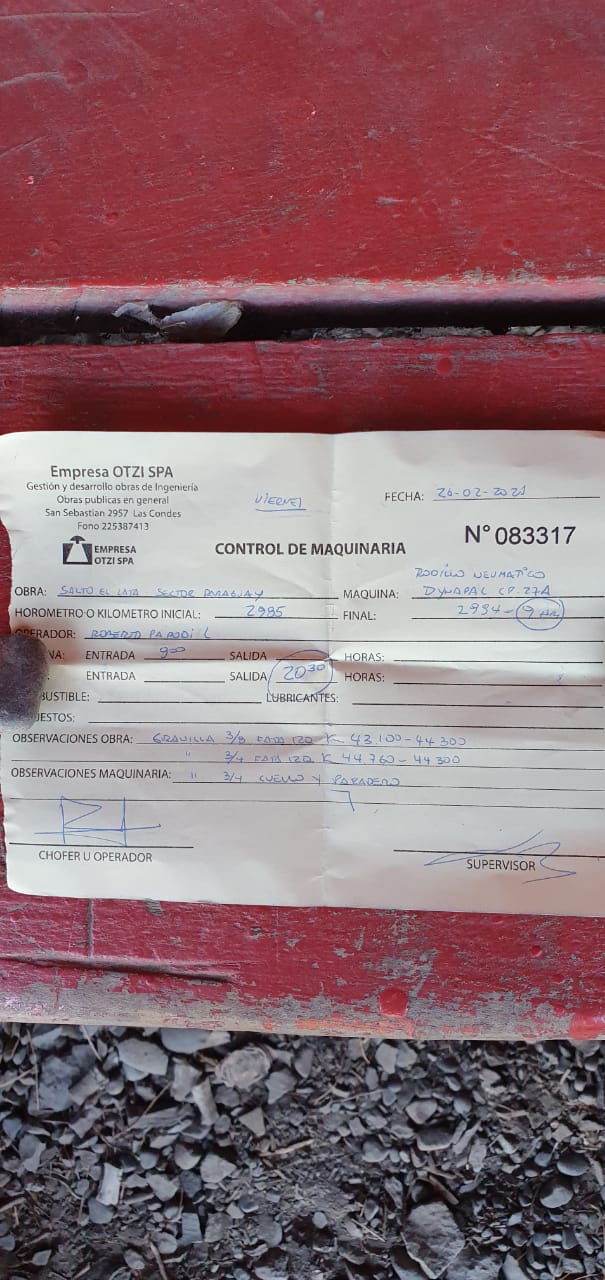 Empresa OTZI SPA
Gestión y desarrollo obras de Ingeniería
Obras publicas en general
San Sebastian 2957 Las Condes
Fono 225387413
EMPRESA
OTZI SPA
VIERNES
FECHA: 26-02-2021
N° 083317
CONTROL DE MAQUINARIA
RODILLO NEUMATICO
OBRA: SALTO EL LAJA SECTOR PARAGUAY MAQUINA: DYNAPAC CP.27A
HOROMETRO O KILOMETRO INICIAL: 2985 FINAL: 2994 - 9 HR
OPERADOR: ROBERTO PARODI L
NA: ENTRADA 900 SALIDA HORAS:
ENTRADA SALIDA 20 30 HORAS:
BUSTIBLE: LUBRICANTES:
UESTOS:
OBSERVACIONES OBRA: GRAVILLA 3/8 FAJA IZQ K 43.100-44.300
" 3/4 FAJA IZQ K 44.760-44.300
OBSERVACIONES MAQUINARIA: " 3/4 CUELLO Y PARADERO
CHOFER U OPERADOR
SUPERVISOR